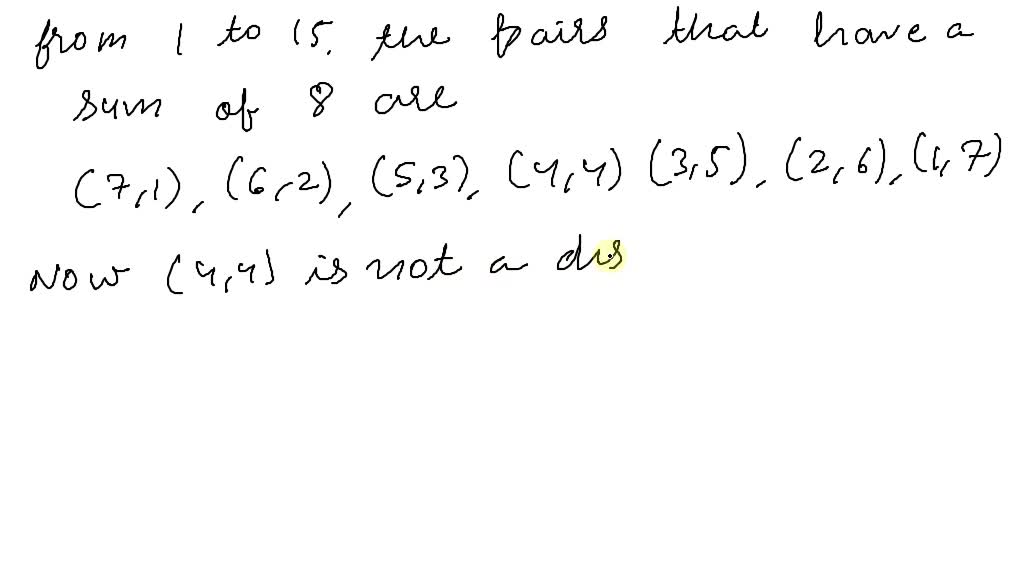 from 1 to 15. the pairs that have a
sum of 8 are
(7,1), (6,2), (5,3), (4,4) (3,5), (2,6), (1,7)
Now (4,4) is not a dis